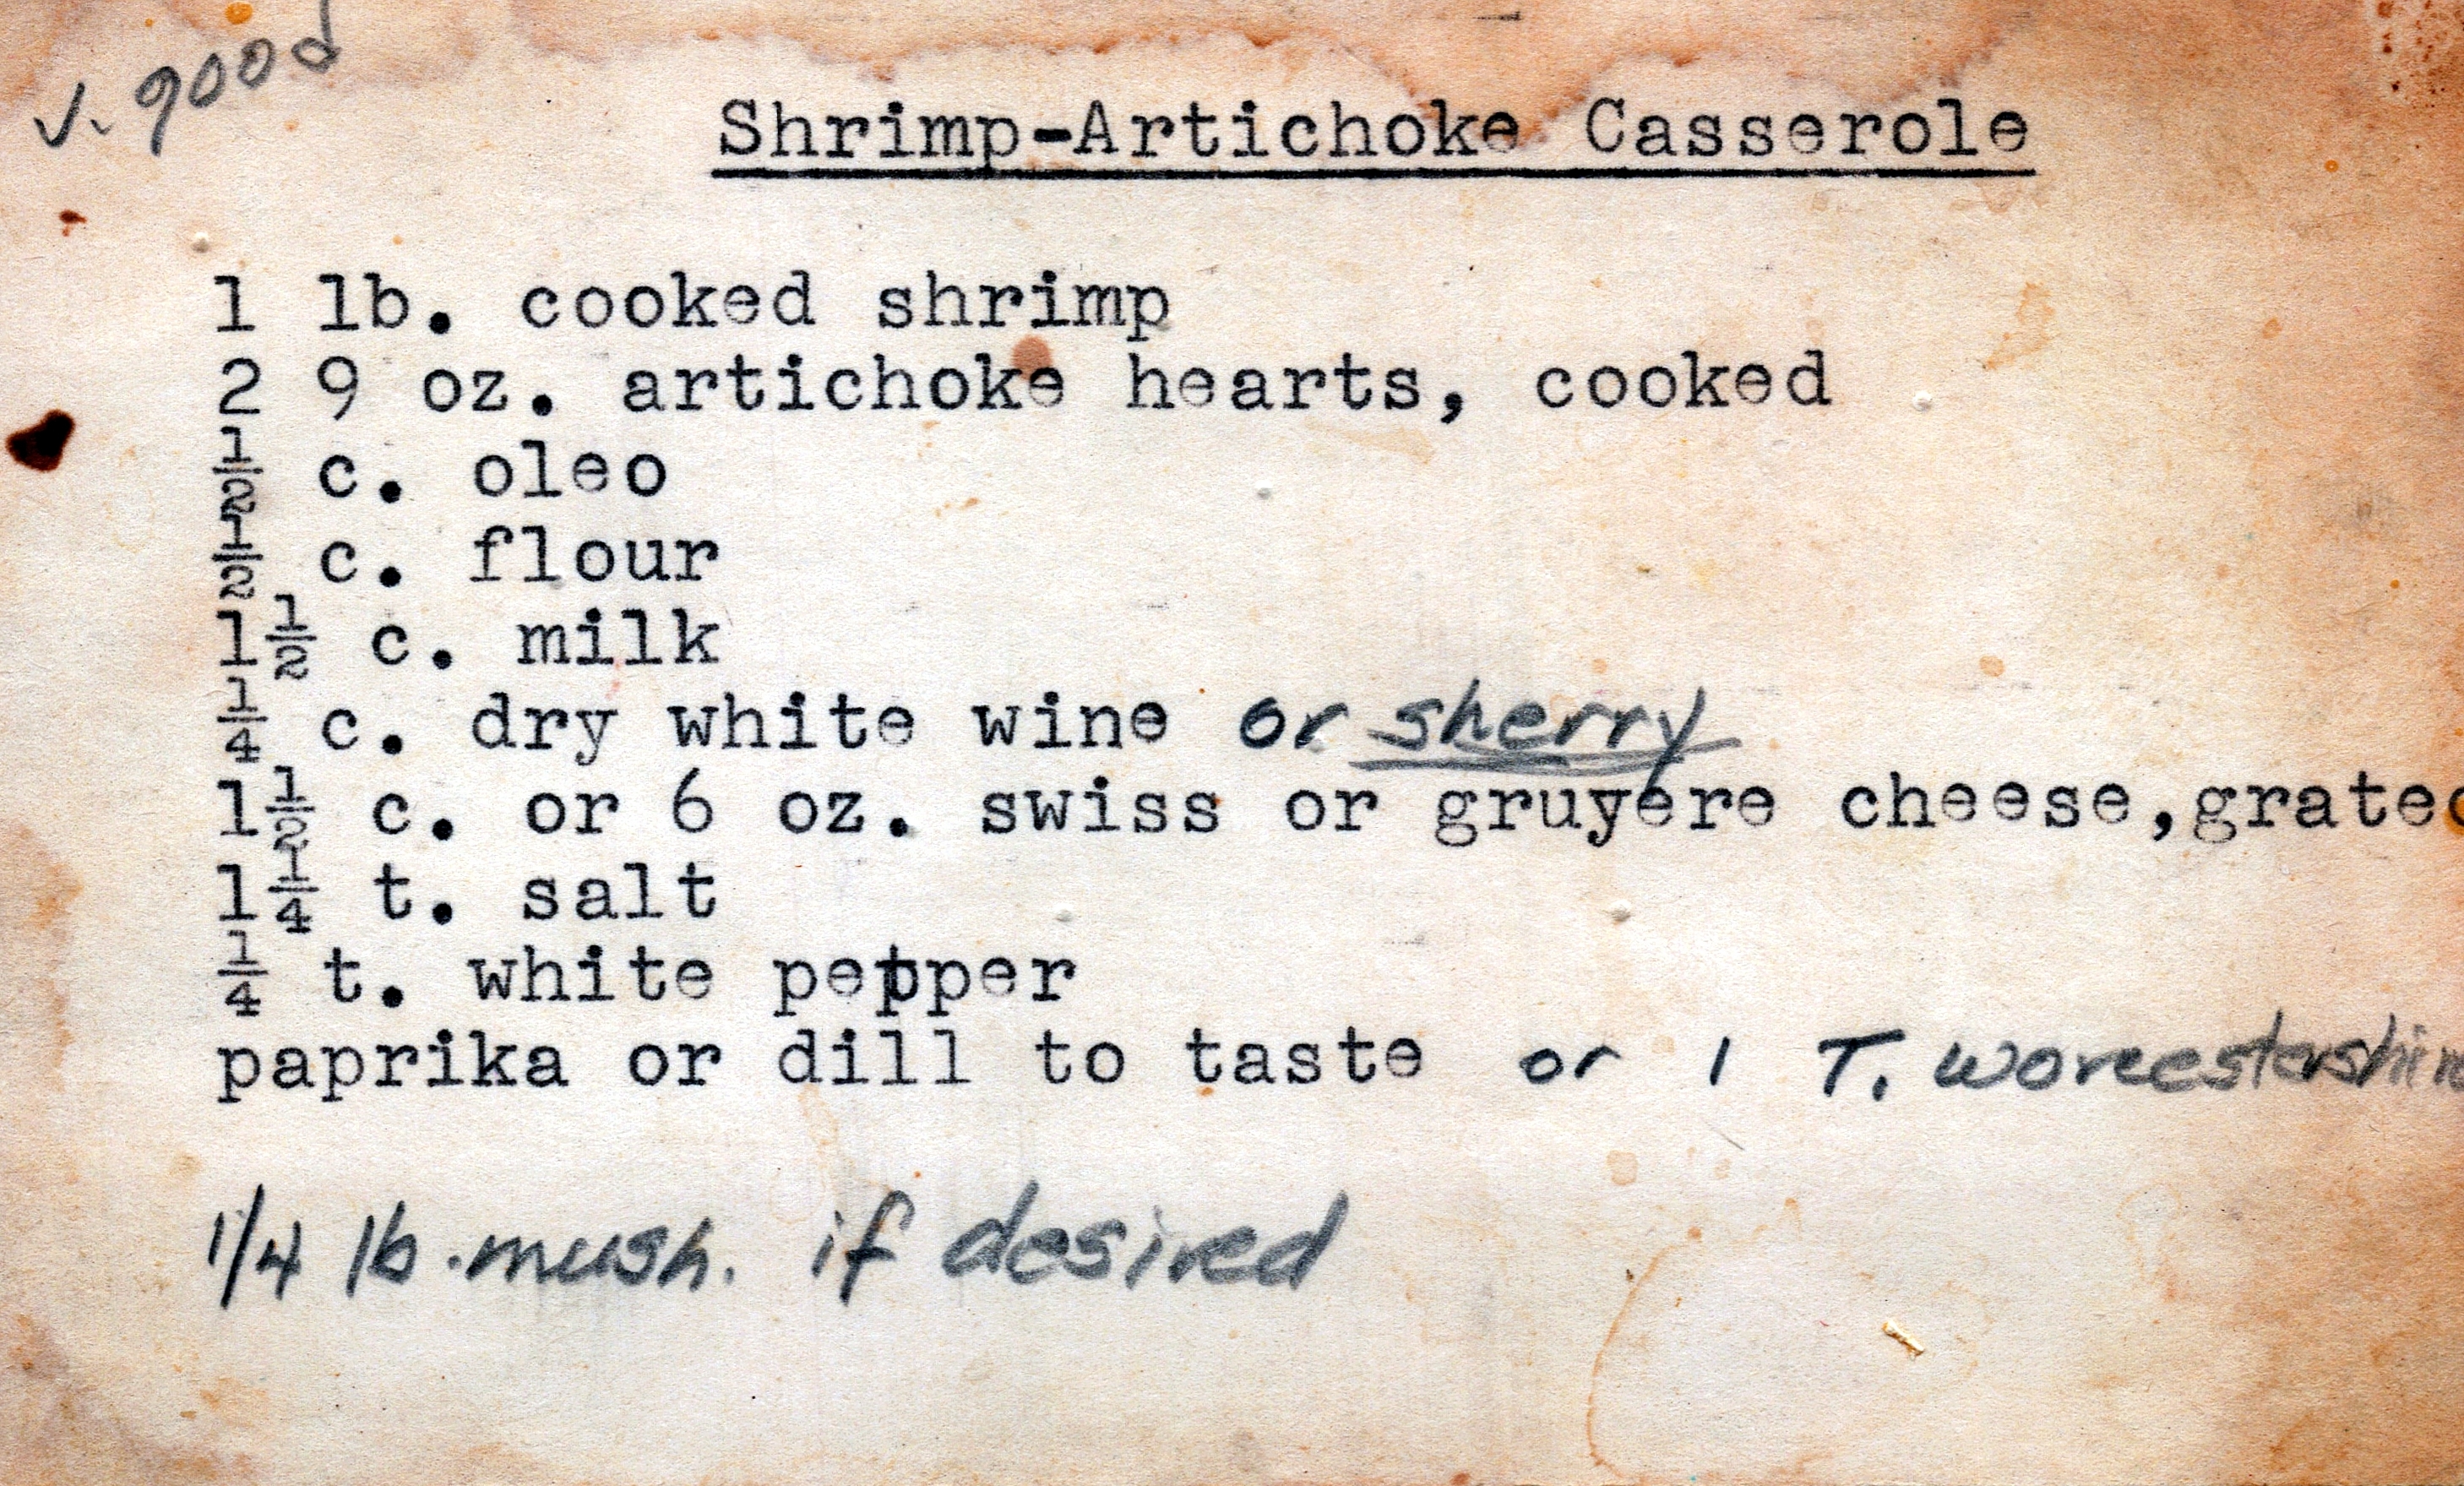 v. good
Shrimp-Artichoke Casserole
1 lb. cooked shrimp
2 9 oz. artichoke hearts, cooked
½ c. oleo
½ c. flour
1½ c. milk
¼ c. dry white wine or sherry
1½ c. or 6 oz. swiss or gruyere cheese,grated
1¼ t. salt
¼ t. white pepper
paprika or dill to taste or 1 T. worcestershire
1/4 lb. mush. if desired